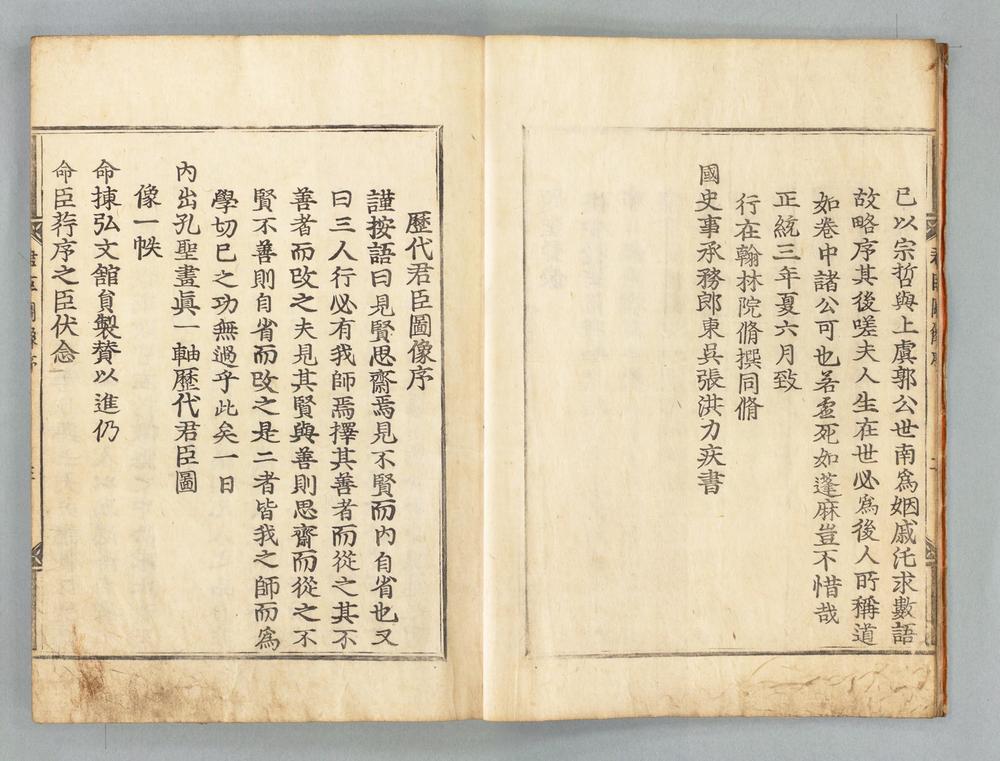 已以宗哲與上虞郭公世南爲姻戚汑求數語
故略序其後嗟夫人生在世必爲後人所稱道
如卷中諸公可也若虛死如蓬麻豈不惜哉
正統三年夏六月致
行在翰林院脩撰同脩
國史事承務郎東吳張洪力疾書
歷代君臣圖像序
謹按語曰見賢思齋焉見不賢而內自省也又
曰三人行必有我師焉擇其善者而從之其不
善者而改之夫見其賢與善則思齋而從之不
賢不善則自省而改之是二者皆我之師而爲
學切已之功無過乎此矣一日
內出孔聖畫眞一軸歷代君臣圖
像一帙
命揀弘文舘員製賛以進仍
命臣荇序之臣伏念